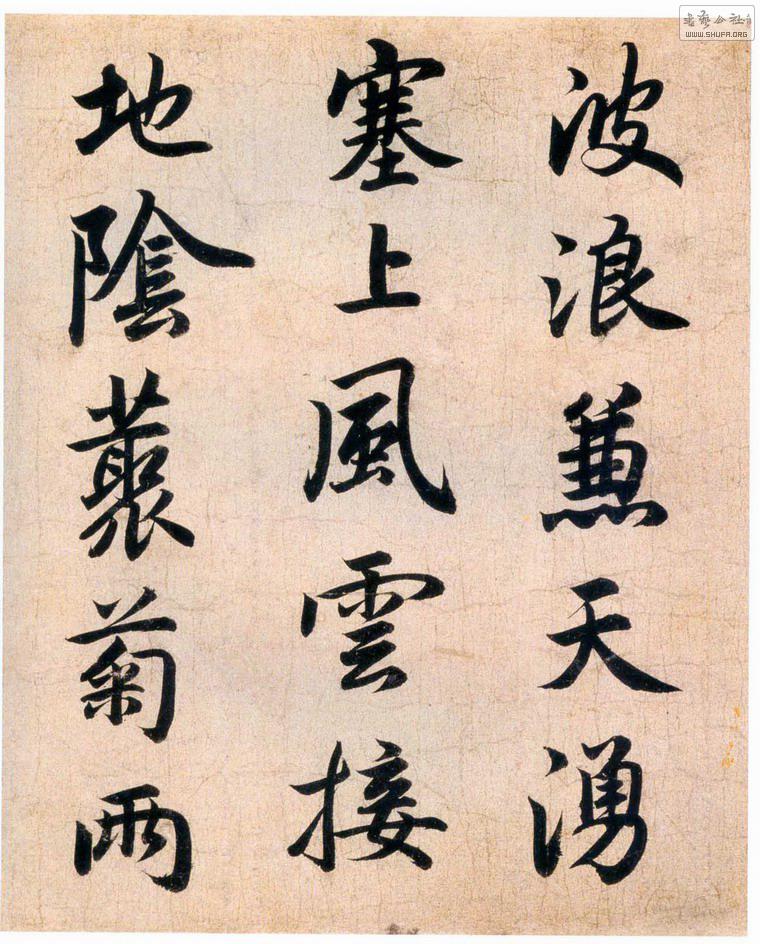 波浪蒹天湧
塞上風雲接
地陰藂菊兩
書藝公社
WWW.SHUFA.ORG